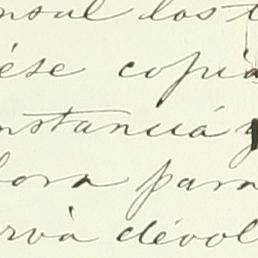 nsul los t
ése copia
nstanciá y
bora para
rvà dévol